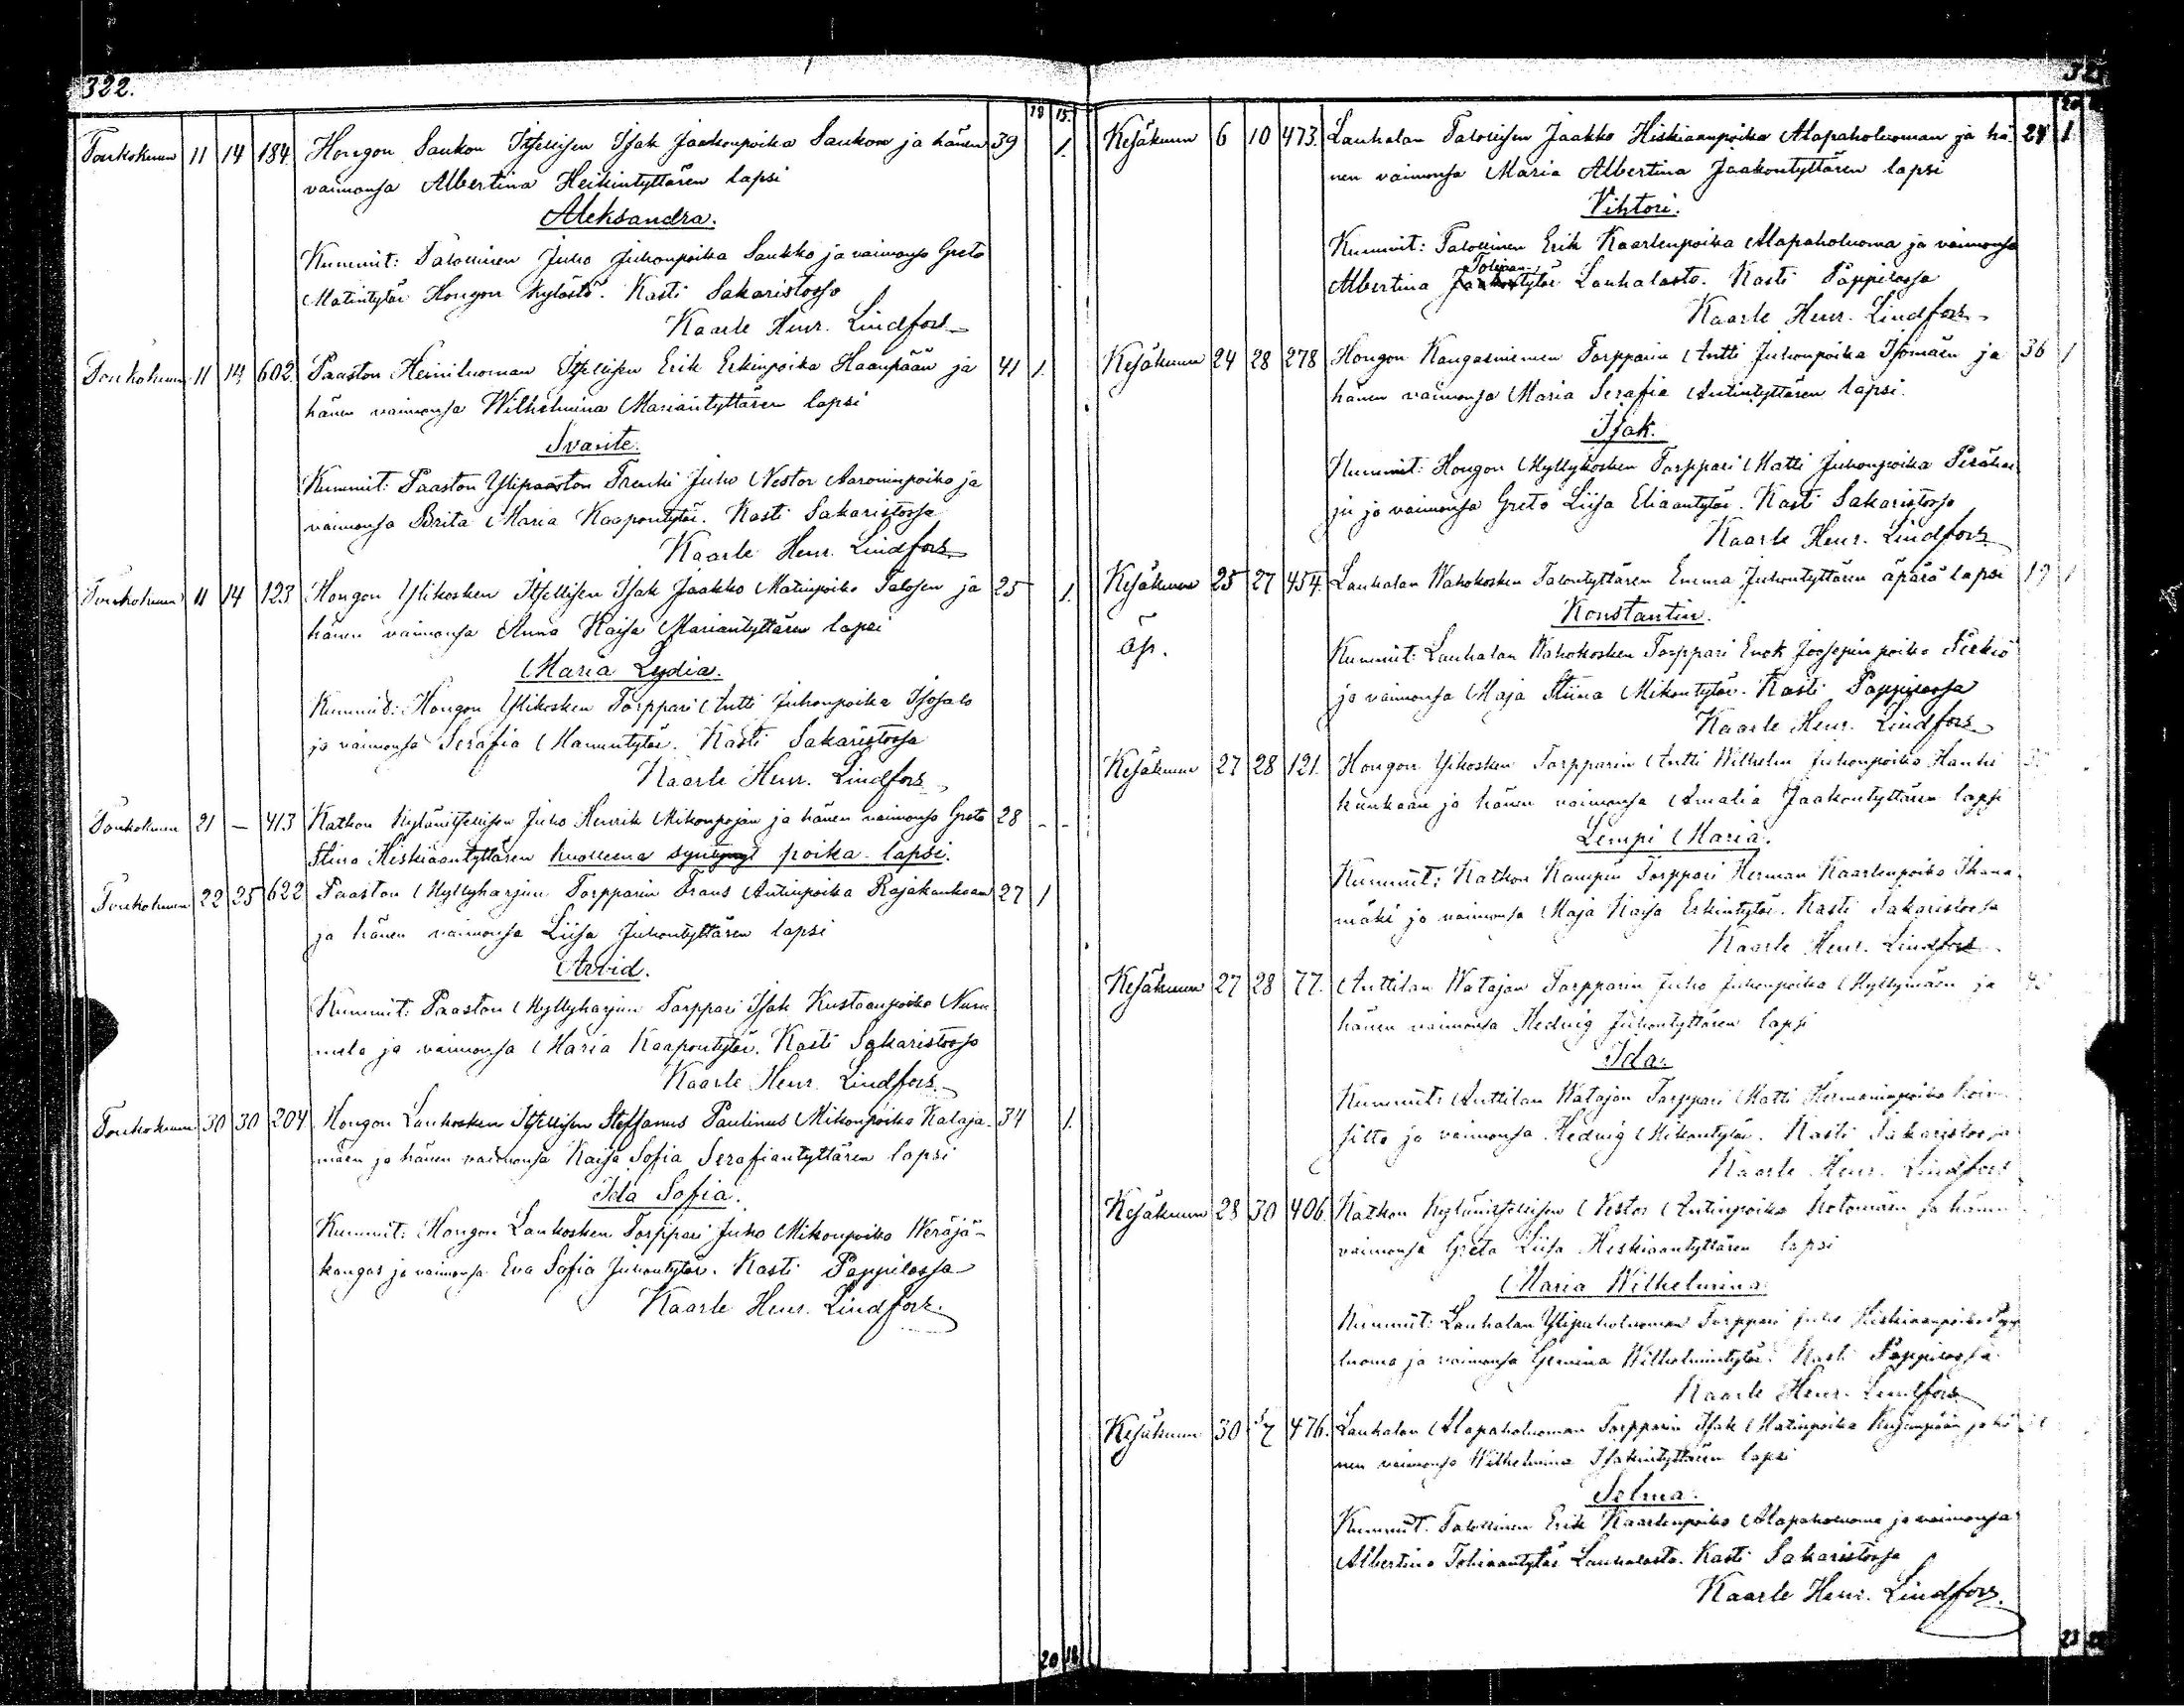 322.
18 15.
Toukokuun 11 14 184. Hongon Saukon Itsellisen Isak Jaakonpoika Saukon ja hänen 39 1.
vaimonsa Albertina Heikintyttären lapsi
Aleksandra.
Kummit: Talollinen Juho Juhonpoika Saukko ja vaimonsa Greta
Matintytär Hongon kylästä. Kasti Sakaristossa
Kaarle Henr. Lindfors
Toukokuun 11 14 602. Paaston Heiniluoman Itsellisen Erik Erkinpoika Haanpään ja 41 1.
hänen vaimonsa Wilhelmina Mariantyttären lapsi
Svante.
Kummit: Paaston Ylipaaston Trenki Juho Nestor Aaroninpoika ja
vaimonsa Brita Maria Kaapontytär. Kasti Sakaristossa
Kaarle Henr. Lindfors
Toukokuun 11 14 123 Hongon Ylikosken Itsellisen Isak Jaakko Matinpoika Salosen ja 25 1.
hänen vaimonsa Anna Kaisa Mariantyttären lapsi
Maria Lydia.
Kummit: Hongon Ylikosken Torppari Antti Juhonpoika Isosalo
ja vaimonsa Serafia Manuntytär. Kasti Sakaristossa
Kaarle Henr. Lindfors
Toukokuun 21 — 413 Katkon Kylänitsellisen Juho Henrik Mikonpojan ja hänen vaimonsa Greta 28 - -
Stina Hiskiaantyttären kuolleena syntynyt poika-lapsi.
Toukokuun 22 25 622 Paaston Myllyharjun Torpparin Frans Antinpoika Rajakankaan 27 1
ja hänen vaimonsa Liisa Juhontyttären lapsi
Arvid.
Kummit: Paaston Myllyharjun Torppari Isak Kustaanpoika Num-
mela ja vaimonsa Maria Kaapontytär. Kasti Sakaristossa
Kaarle Henr. Lindfors.
Toukokuun 30 30 204 Hongon Laukosken Itsellisen Steffanus Paulinus Mikonpoika Kataja- 34 1.
mäen ja hänen vaimonsa Kaisa Sofia Serafiantyttären lapsi
Ida Sofia.
Kummit: Hongon Laukosken Torppari Juho Mikonpoika Weräjä-
kangas ja vaimonsa Eva Sofia Juhontytär. Kasti Pappilassa
Kaarle Henr. Lindfors.
20 18
Kesäkuun 6 10 473. Lauhalan Talollisen Jaakko Hiskiaanpoika Alapaholuoman ja hä- 24 1.
nen vaimonsa Maria Albertina Jaakontyttären lapsi
Vihtori.
Kummit: Talollinen Erik Kaarlenpoika Alapaholuoma ja vaimonsa
Albertina Tobiaantytär Lauhalasta. Kasti Pappilassa
Kaarle Henr. Lindfors
Kesäkuun 24 28 278 Hongon Kangasniemen Torpparin Antti Juhonpoika Isomäen ja 36 1
hänen vaimonsa Maria Serafia Antintyttären lapsi.
Isak.
Kummit: Hongon Myllykosken Torppari Matti Juhonpoika Perähar
ju ja vaimonsa Greta Liisa Eliaantytär. Kasti Sakaristossa
Kaarle Henr. Lindfors
Kesäkuun 25 27 454. Lauhalan Wahokosken Talontyttären Emma Juhontyttären äpärä lapsi 19 1
äp. Konstantin.
Kummit: Lauhalan Wahokosken Torppari Enok Joosepinpoika
ja vaimonsa Maja Stiina Mikontytär. Kasti Pappilassa
Kaarle Henr. Lindfors
Kesäkuun 27 28 121. Hongon Ylikosken Torpparin Antti Wilhelm Juhonpoika Hanhi
kankaan ja hänen vaimonsa Amalia Jaakontyttären lapsi
Lempi Maria.
Kummit: Katkon Kampin Torppari Herman Kaarlenpoika Ihana-
mäki ja vaimonsa Maja Kaisa Erkintytär. Kasti Sakaristossa
Kaarle Henr. Lindfors
Kesäkuun 27 28 77. Anttilan Watajan Torpparin Juho Juhonpoika Myllymäen ja
hänen vaimonsa Hedvig Juhontyttären lapsi
Ida.
Kummit: Anttilan Watajan Torppari Matti Hermaninpoika
ja vaimonsa Hedvig Mikontytär. Kasti Sakaristossa
Kaarle Henr. Lindfors
Kesäkuun 28 30 406. Katkon Kylänitsellisen Nestor Antinpoika Kotomäen ja hänen
vaimonsa Greta Liisa Hiskiaantyttären lapsi
Maria Wilhelmina.
Kummit: Lauhalan Ylipaholuoman Torppari Juho Hiskiaanpoika
luoma ja vaimonsa Wilhelmintytär. Kasti Pappilassa.
Kaarle Henr. Lindfors
Kesäkuun 30 476. Lauhalan Alapaholuoman Torpparin Isak Matinpoika ja hä
nen vaimonsa Wilhelmina Isakintyttären lapsi
Selma.
Kummit. Talollinen Erik Kaarlenpoika Alapaholuoma ja vaimonsa
Albertina Tobiaantytär Lauhalasta. Kasti Sakaristossa
Kaarle Henr. Lindfors.
23